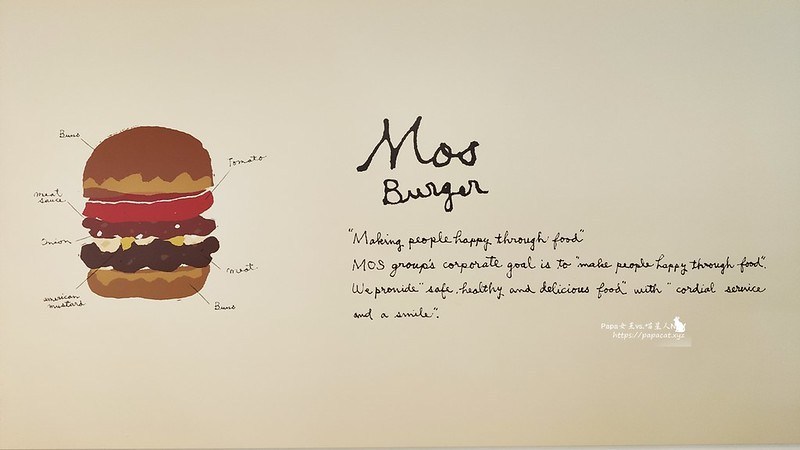 Buns
Tomato
meat
sauce
Onion
meat.
american
mustard
Buns
Mos
Burger
"Making people happy through food"
MOS group's corporate goal is to "make people happy through food".
We provide "safe, healthy and delicious food" with "cordial service
and a smile".
https://papacat.xyz